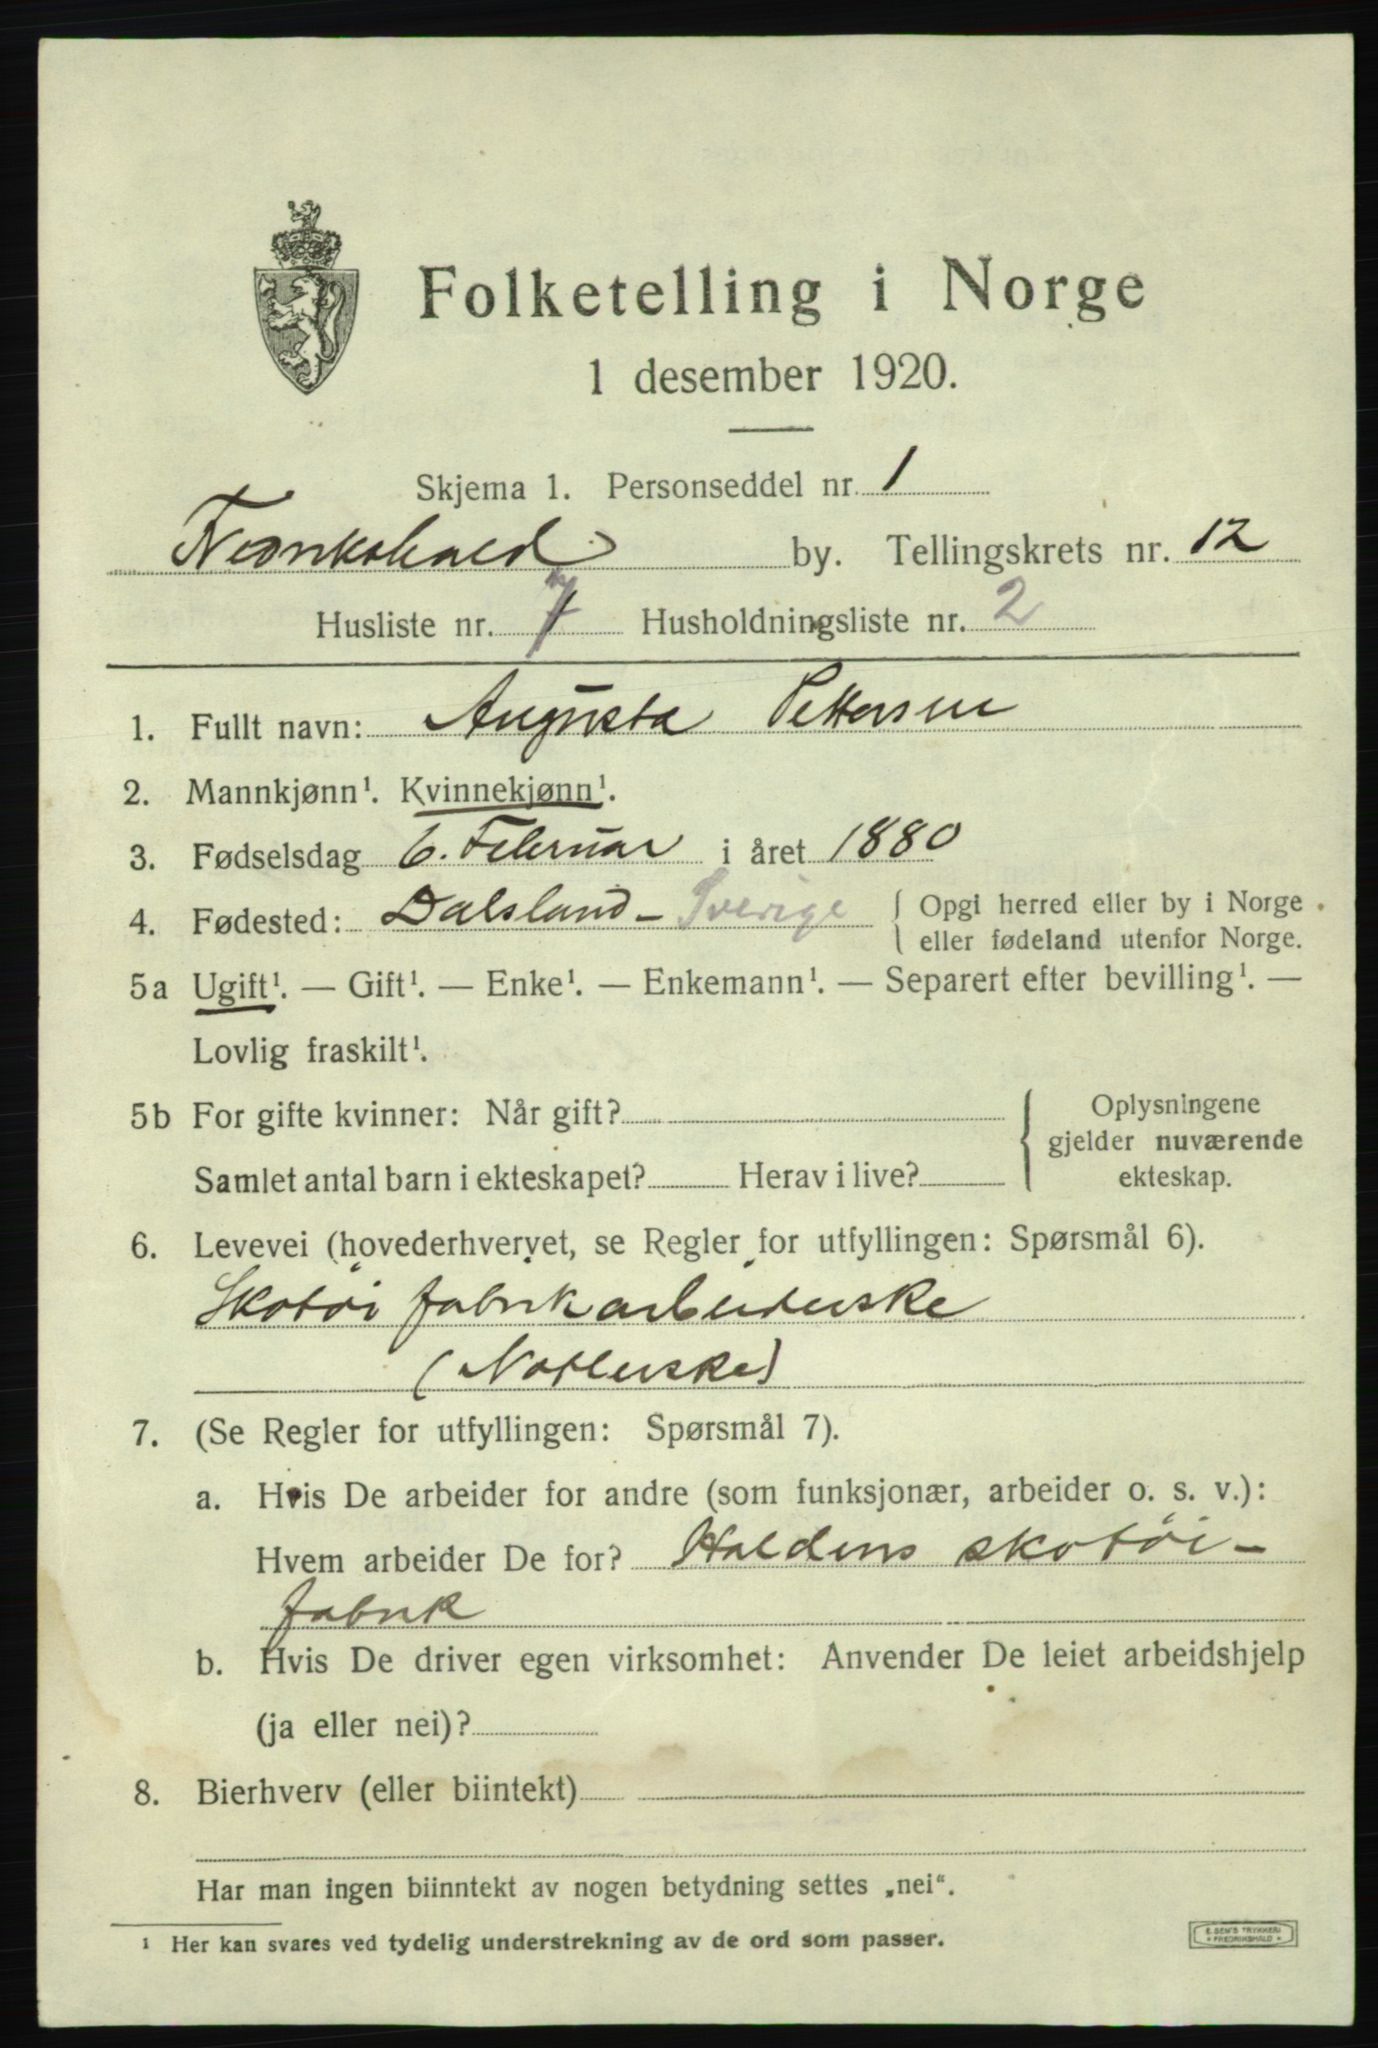 Folketelling i Norge
1 desember 1920.
Skjema 1. Personseddel nr. 1
Fredrikshald by. Tellingskrets nr. 12
Husliste nr. 7 Husholdningsliste nr. 2
1. Fullt navn: Augusta Pettersen
2. Mannkjønn¹. Kvinnekjønn¹.
3. Fødselsdag 6. Februar i året 1880
4. Fødested: Dalsland - Sverige { Opgi herred eller by i Norge
eller fødeland utenfor Norge.
5a Ugift¹. — Gift¹. — Enke¹. — Enkemann¹. — Separert efter bevilling¹. —
Lovlig fraskilt¹.
5b For gifte kvinner: Når gift? { Oplysningene
gjelder nuværende
Samlet antal barn i ekteskapet? Herav i live? ekteskap.
6. Levevei (hovederhvervet, se Regler for utfyllingen: Spørsmål 6).
Skotøi fabrikarbeiderske
(Natlerske)
7. (Se Regler for utfyllingen: Spørsmål 7).
a. Hvis De arbeider for andre (som funksjonær, arbeider o. s. v.):
Hvem arbeider De for? Haldens skotøi-
fabrik
b. Hvis De driver egen virksomhet: Anvender De leiet arbeidshjelp
(ja eller nei)?
8. Bierhverv (eller biintekt)
Har man ingen biinntekt av nogen betydning settes „nei“.
¹ Her kan svares ved tydelig understrekning av de ord som passer.
E. SEM'S TRYKKERI
• FREDRIKSHALD •